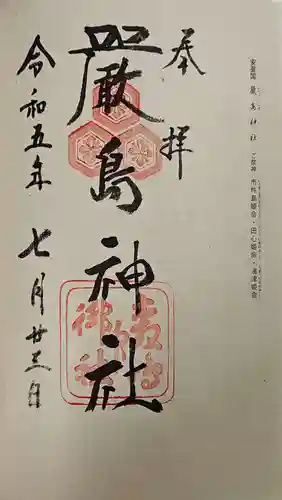 安芸国 厳島神社 ご祭神 市杵島姫命・田心姫命・湍津姫命
奉拝
嚴島神社
令和五年 七月廿三日